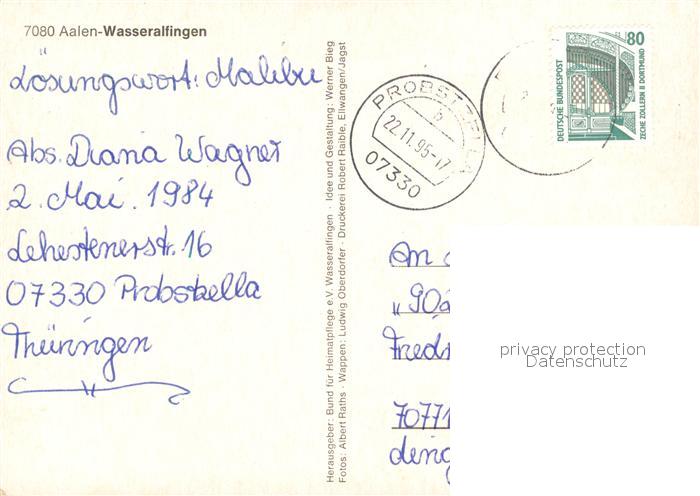 7080 Aalen-Wasseralfingen
Lösungswort: Malibu
Abs. Diana Wagner
2. Mai. 1984
Lehestenerstr. 16
07330 Probstzella
Thüringen
Herausgeber: Bund für Heimatpflege e.V. Wasseralfingen · Idee und Gestaltung: Werner Bieg
Fotos: Albert Raths · Wappen: Ludwig Oberdorfer · Druckerei Robert Raible, Ellwangen/Jagst
PROBSTZELLA
b
22.11.95-17
07330
80
DEUTSCHE BUNDESPOST
ZECHE ZOLLERN II DORTMUND
An
"90
Fredr
70771
ding
privacy protection
Datenschutz